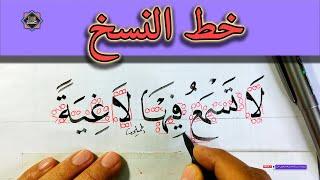 خط النسخ
لَا تَسْمَعُ فِيهَا لَاغِيَةً